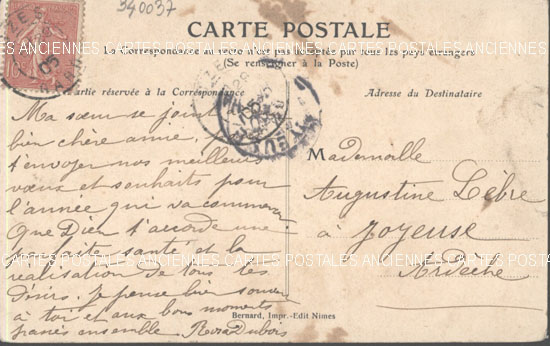 340037
CARTE POSTALE
La Correspondance au recto n'est pas acceptée par tous les pays étrangers
(Se renseigner à la Poste)
Partie réservée à la Correspondance
Adresse du Destinataire
Ma sœur se joint
bien chère amie, p
t'envoyer nos meilleurs
vœux et souhaits pour
l'année qui va commencer.
Que Dieu t'accorde une
parfaite santé et la
réalisation de tous tes
désirs. Je pense bien souven
à toi et aux bons moments
passés ensemble Rosa Dubois
Mademoille
Augustine Lèbre
à Joyeuse
Ardèche
Bernard, Impr.-Edit Nimes
CARTES POSTALES ANCIENNES